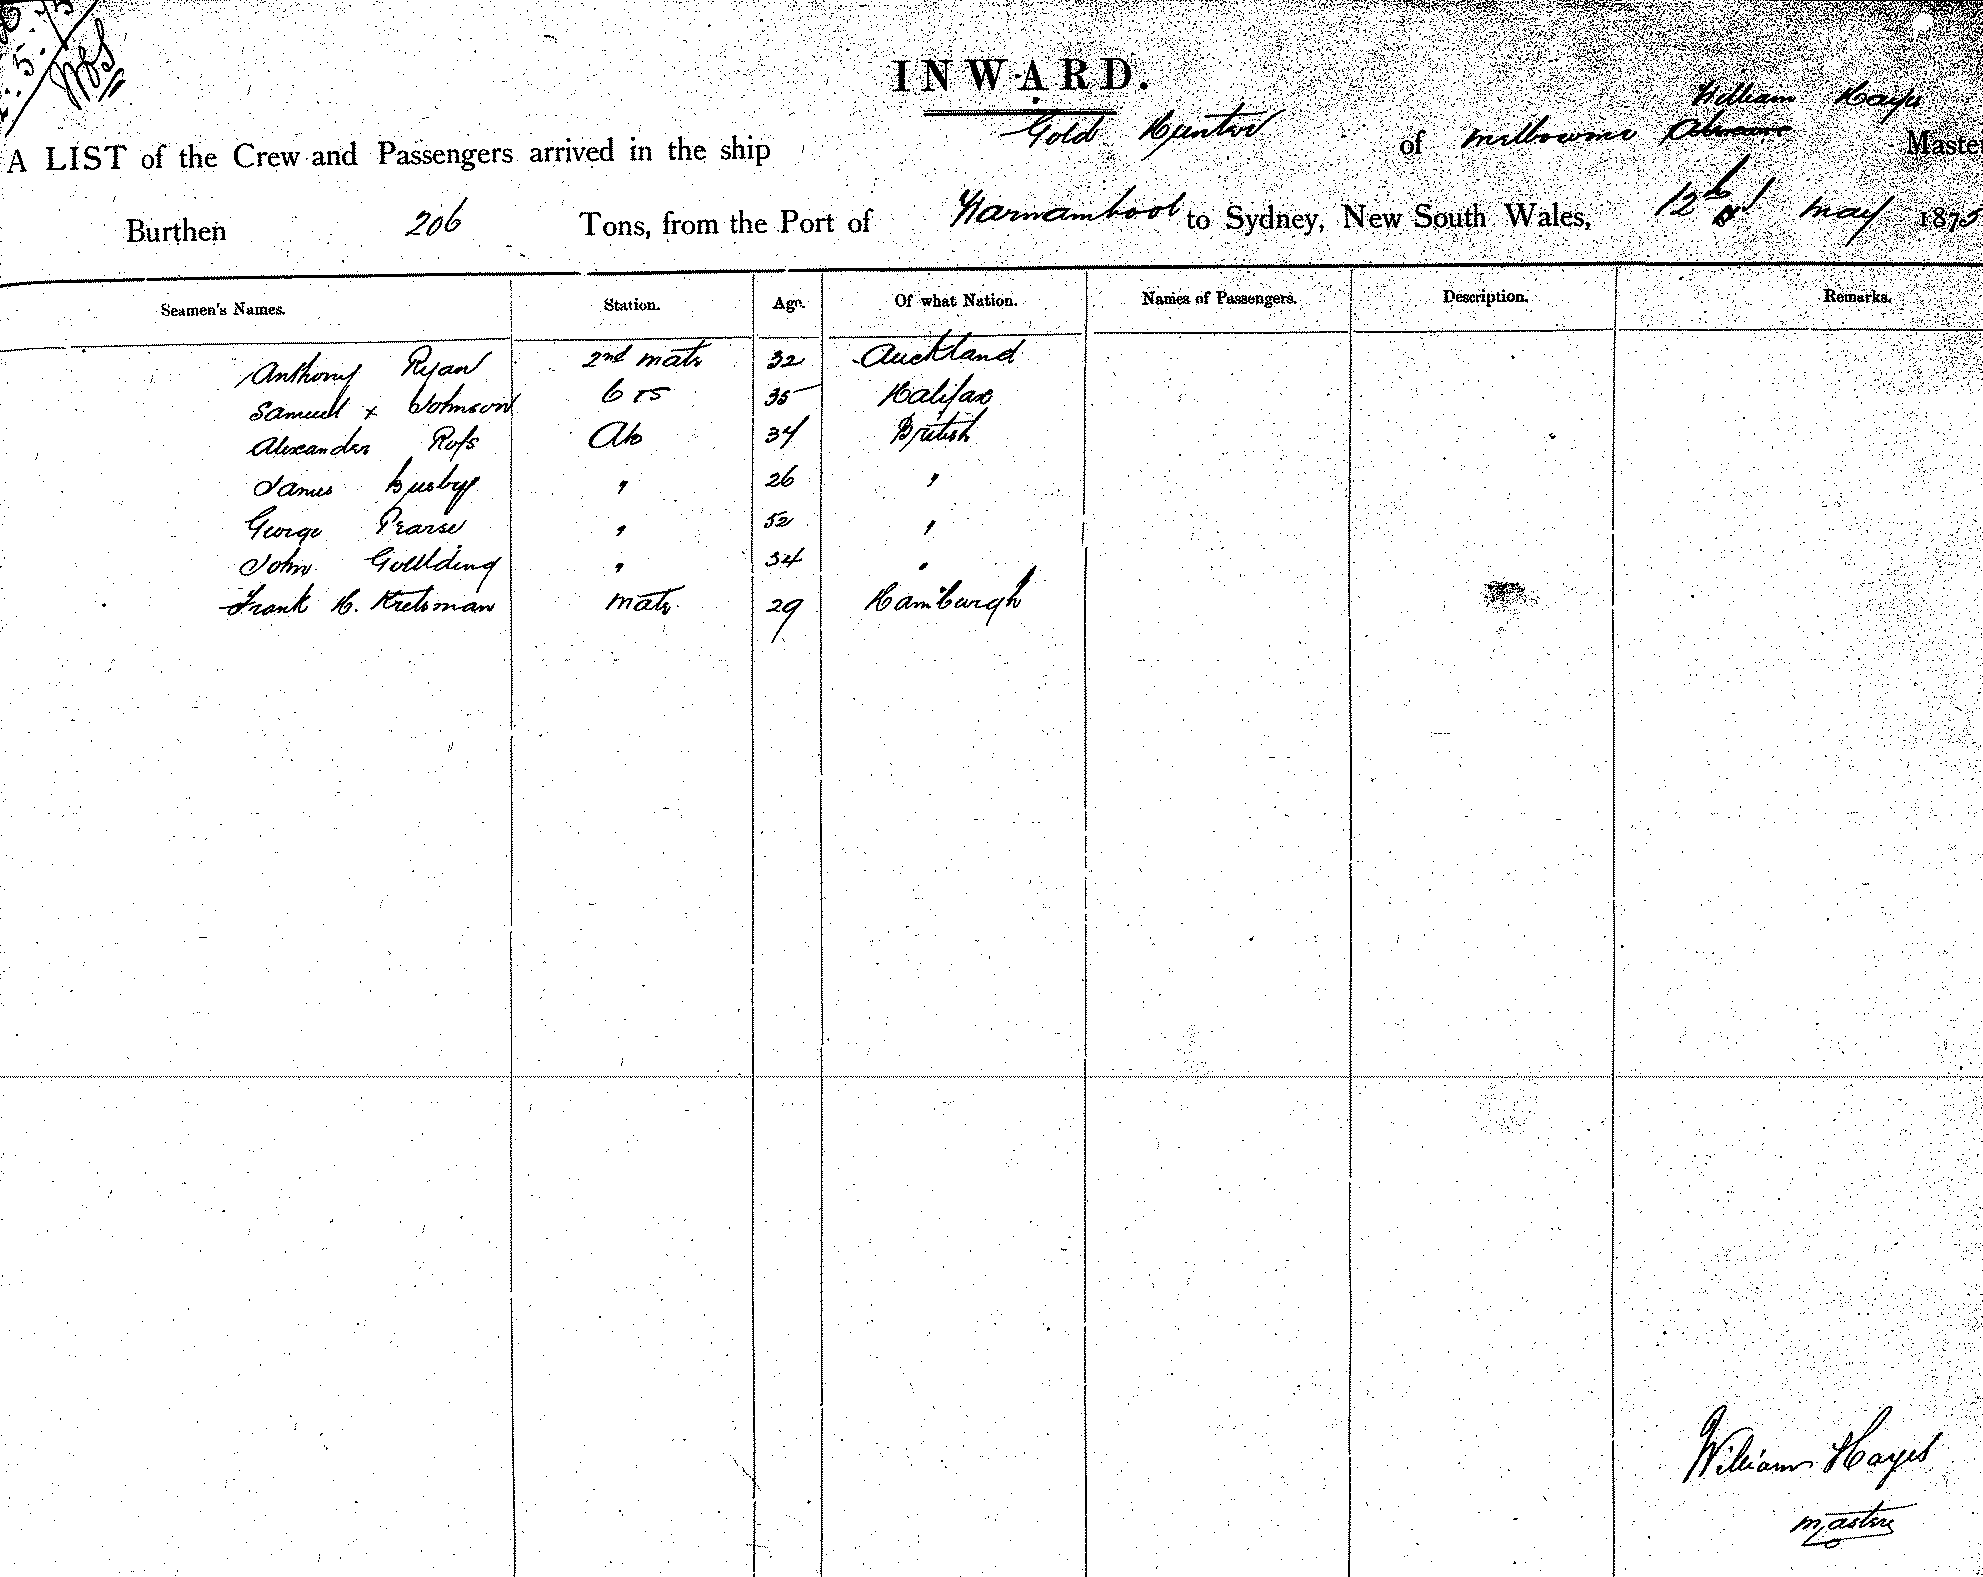 INWARD.
William Hays
A LIST of the Crew and Passengers arrived in the ship Gold Hunter of Melbourne Master
Burthen 206 Tons, from the Port of Warnambool to Sydney, New South Wales, 12th May 1875
Seamen's Names. Station. Age. Of what Nation. Names of Passengers. Description. Remarks.
Anthony Ryan 2nd mate 32 Auckland
Samuel x Johnson 35 Halifax
Alexander Ross AB 34 British
James Busby " 26 "
George Pearse " 52 "
John Goulding " 34 "
Frank H. Kretsman Mate 29 Hamburgh
William Hayes
Master